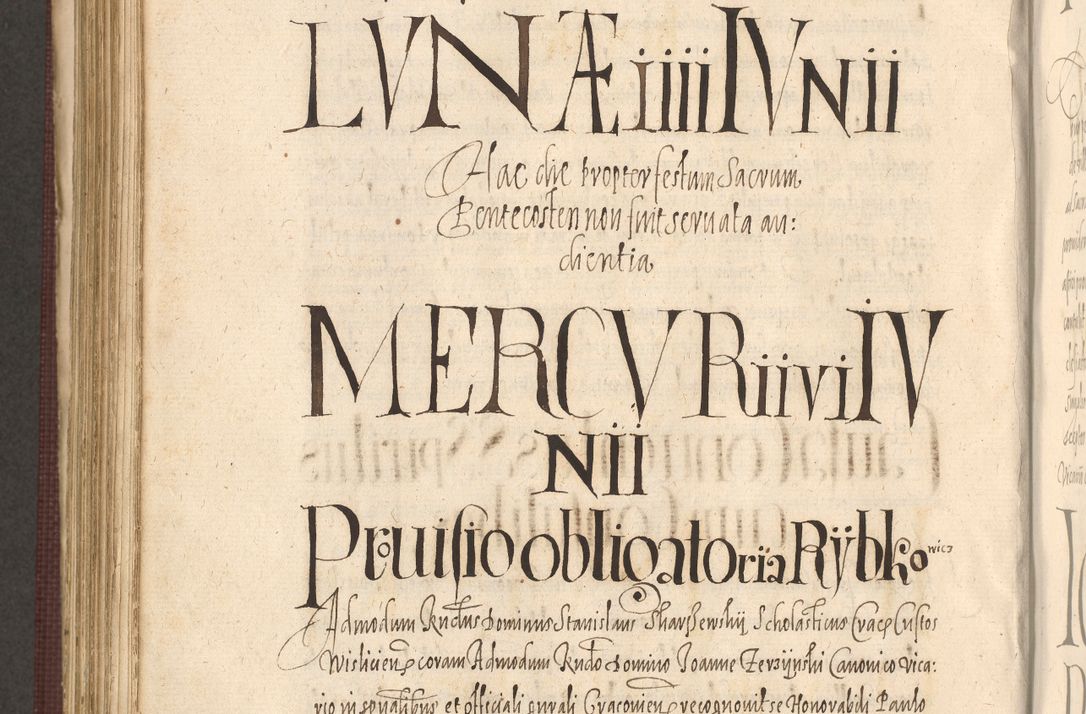 LVNÆ iiii IVnii
Hac die propter festum Sacrum
Pentecosten non fuit seruata au:
dientia
MERCVRii vi IV
nii
Prouisio obligatoria Rÿbkowicz
Admodum Rndus Dominus Stanislaus Skarszewskij Scholasticus Crac Custos
Wislicien coram Admodum Rndo Domino Joanne Zerzijnski Canonico Vica:
rio in spualibus et officiali gnrali Cracouien recognouit se Honorabili Paulo